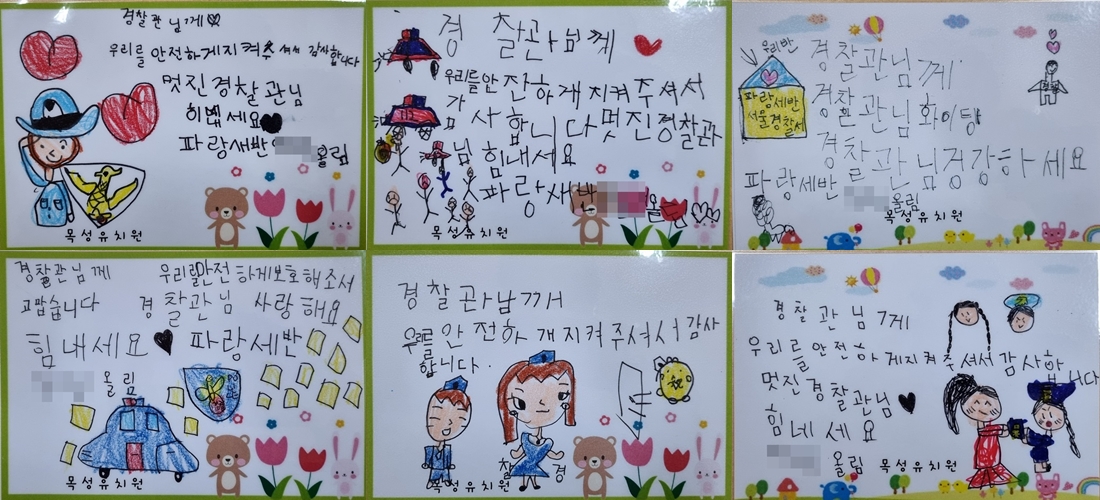 경찰관님께
우리를 안전하게지켜주셔서 감사합니다
멋진경찰관님
힘냅세요
파랑새반
올림
목성유치원
경찰관님께
우리를안전하개지켜주셔서
감사합니다멋진경찰관
님힘내세요
파랑새반
올림
목성유치원
우리반
경찰관님께
파랑세반
서울경찰서
경찰관님화이팅
경찰관님겅강하세요
파랑세반
올림
목성유치원
경찰관님께 우리를안전하게보호해조서
고맙습니다 경찰관님 사랑해요
힘내세요 파랑세반
올림
목성유치원
경찰관님께
우리를안전하개지켜주셔서감사
합니다
찰 경
목성유치원
경찰관님께
우리를안전하게지켜주셔서감사합니다
멋진경찰관님
힘네세요
올림
목성유치원